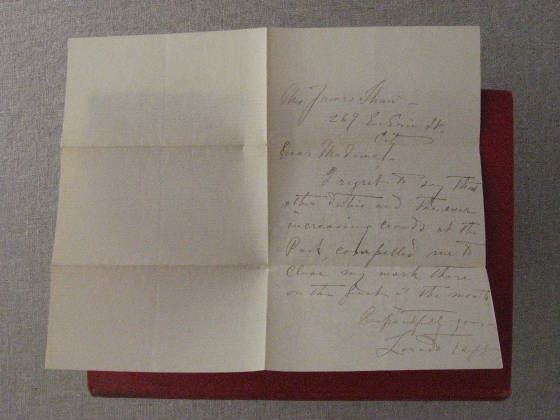 Mrs James Shaw —
269 E. Erie St.
City
Dear Madame, —
I regret to say that
other duties and the ever
increasing crowds at the
Park, compelled me to
close my work there
on the first of the month
Respectfully yours
Lorado Taft